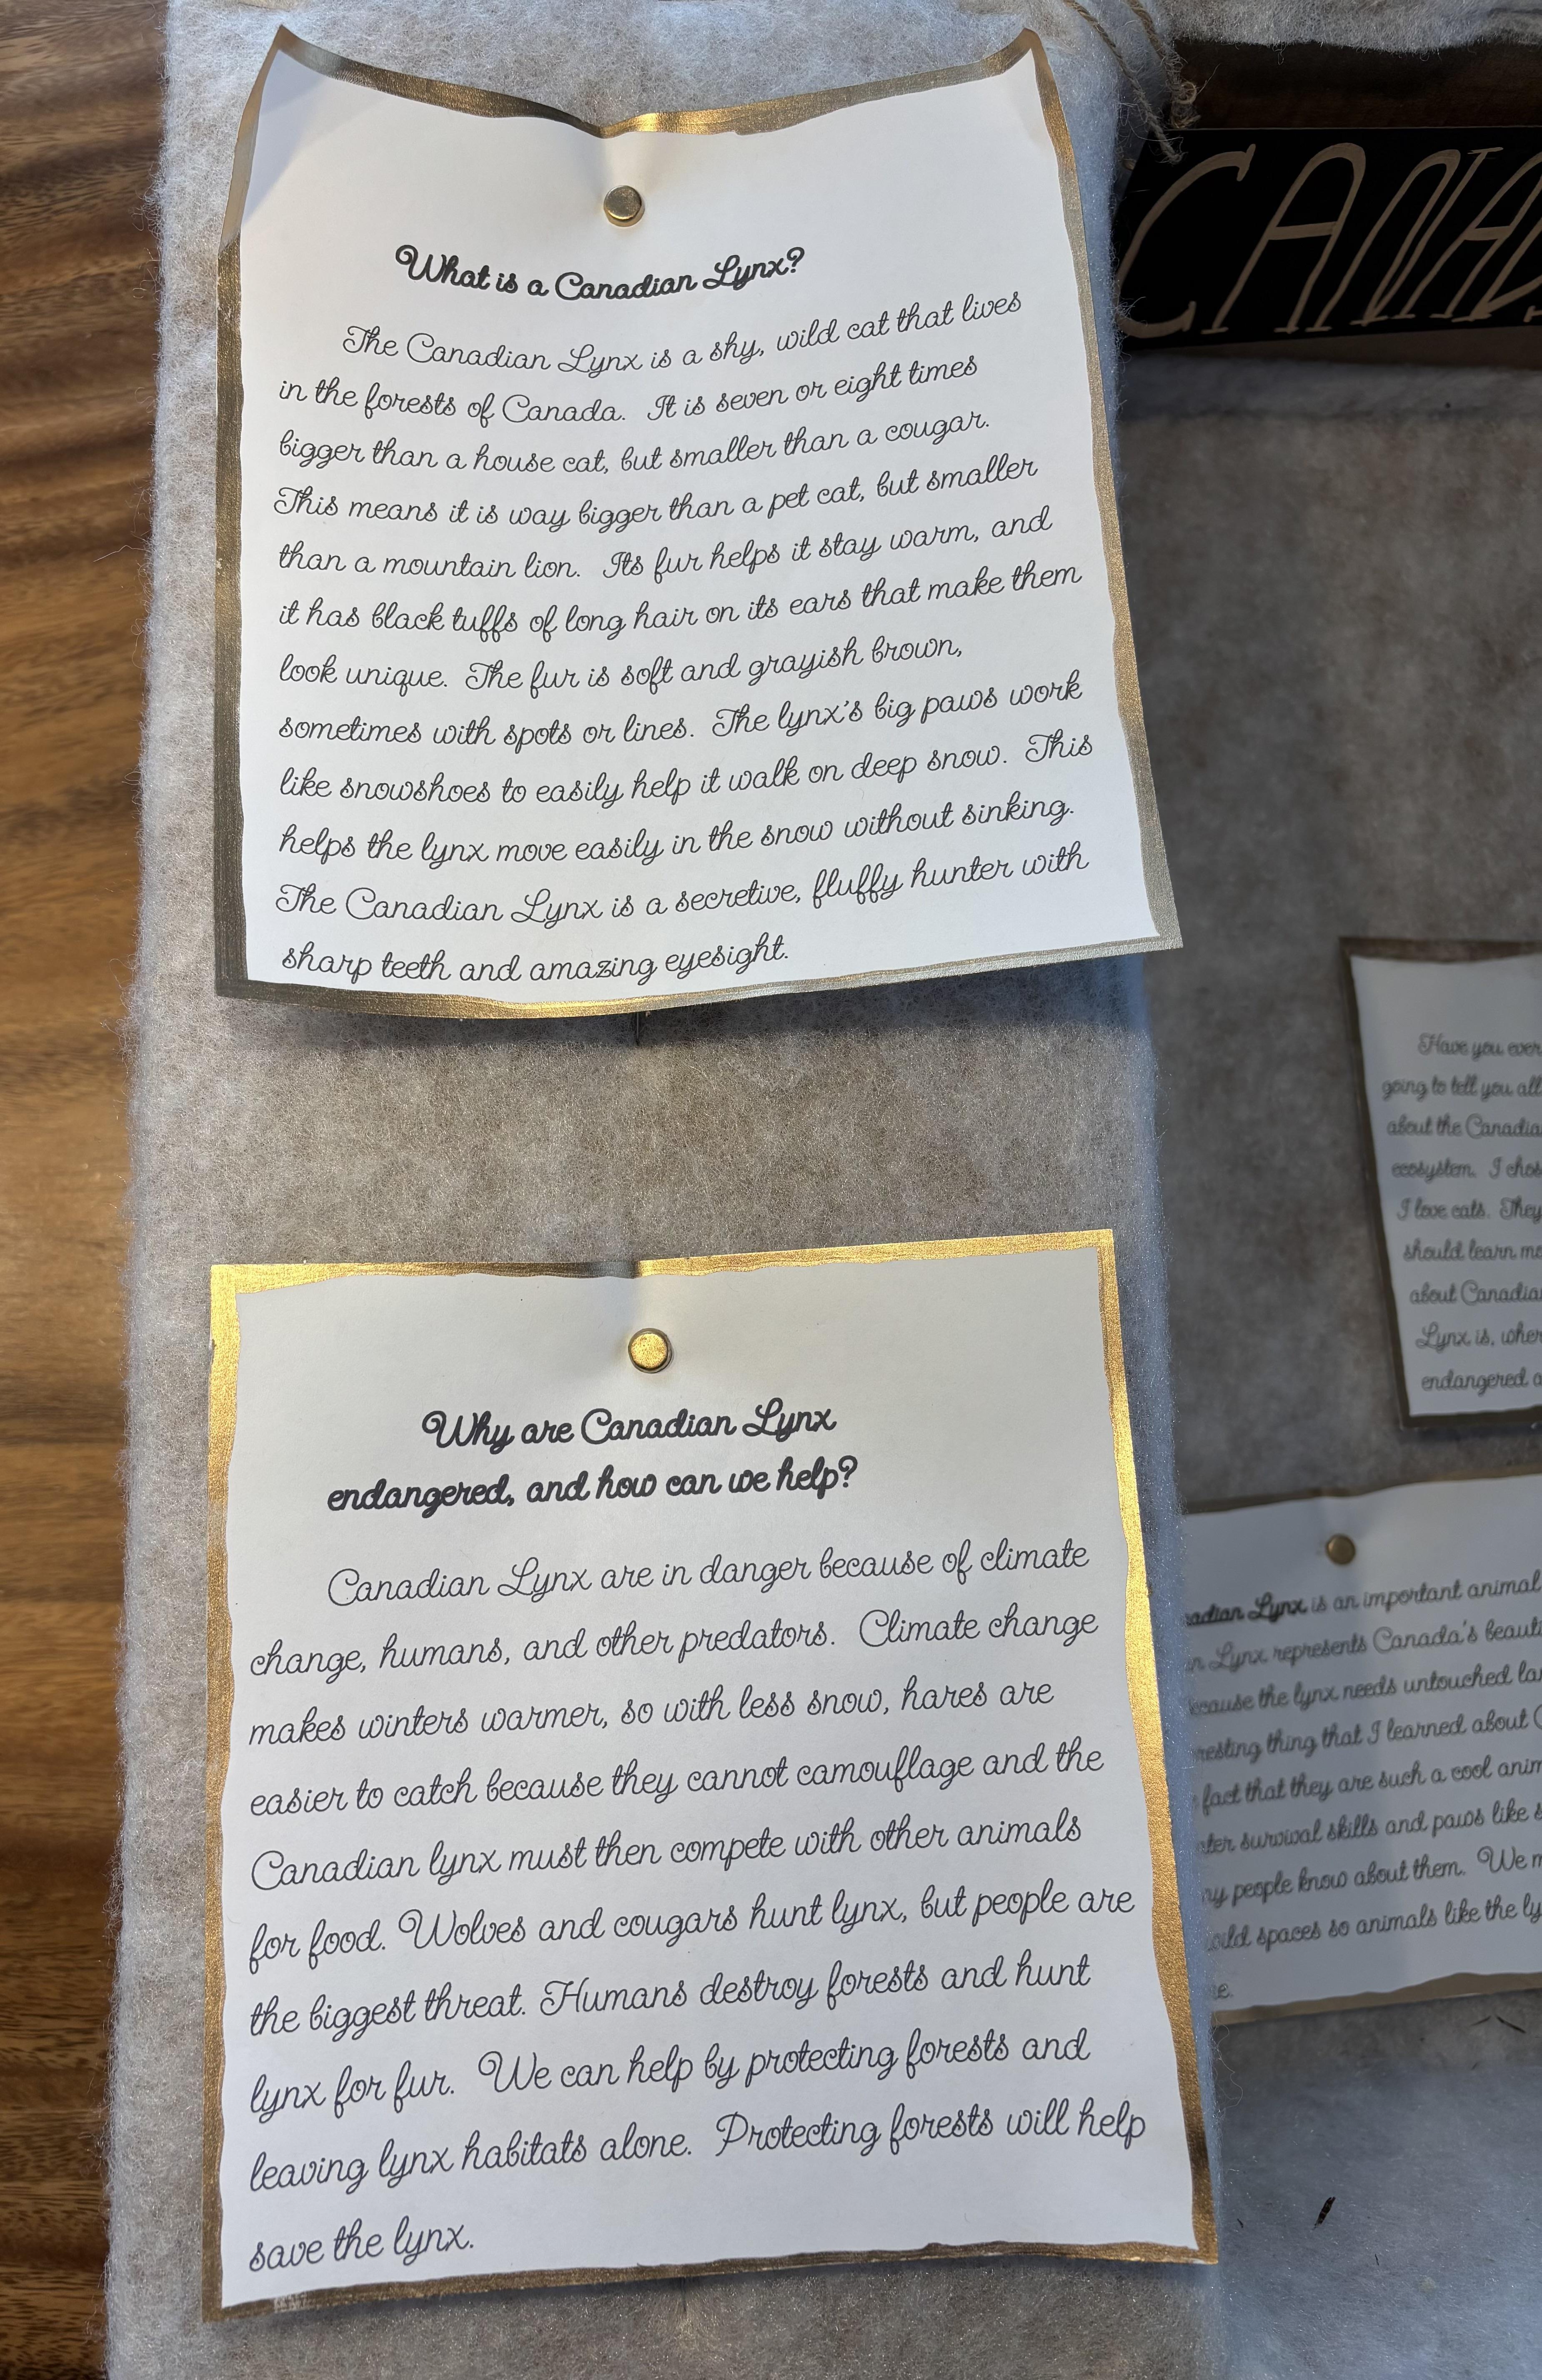 What is a Canadian Lynx?
The Canadian Lynx is a shy, wild cat that lives
in the forests of Canada. It is seven or eight times
bigger than a house cat, but smaller than a cougar.
This means it is way bigger than a pet cat, but smaller
than a mountain lion. Its fur helps it stay warm, and
it has black tuffs of long hair on its ears that make them
look unique. The fur is soft and grayish brown,
sometimes with spots or lines. The lynx's big paws work
like snowshoes to easily help it walk on deep snow. This
helps the lynx move easily in the snow without sinking.
The Canadian Lynx is a secretive, fluffy hunter with
sharp teeth and amazing eyesight.
Why are Canadian Lynx
endangered, and how can we help?
Canadian Lynx are in danger because of climate
change, humans, and other predators. Climate change
makes winters warmer, so with less snow, hares are
easier to catch because they cannot camouflage and the
Canadian lynx must then compete with other animals
for food. Wolves and cougars hunt lynx, but people are
the biggest threat. Humans destroy forests and hunt
lynx for fur. We can help by protecting forests and
leaving lynx habitats alone. Protecting forests will help
save the lynx.
CANAD
Have you ever
going to tell you all
about the Canadia
ecosystem. I chos
I love cats. They
should learn mo
about Canadia
Lynx is, wher
endangered a
adian Lynx is an important animal
n Lynx represents Canada's beauti
ecause the lynx needs untouched la
resting thing that I learned about
fact that they are such a cool anim
ter survival skills and paws like s
ny people know about them. We m
ild spaces so animals like the ly
e.